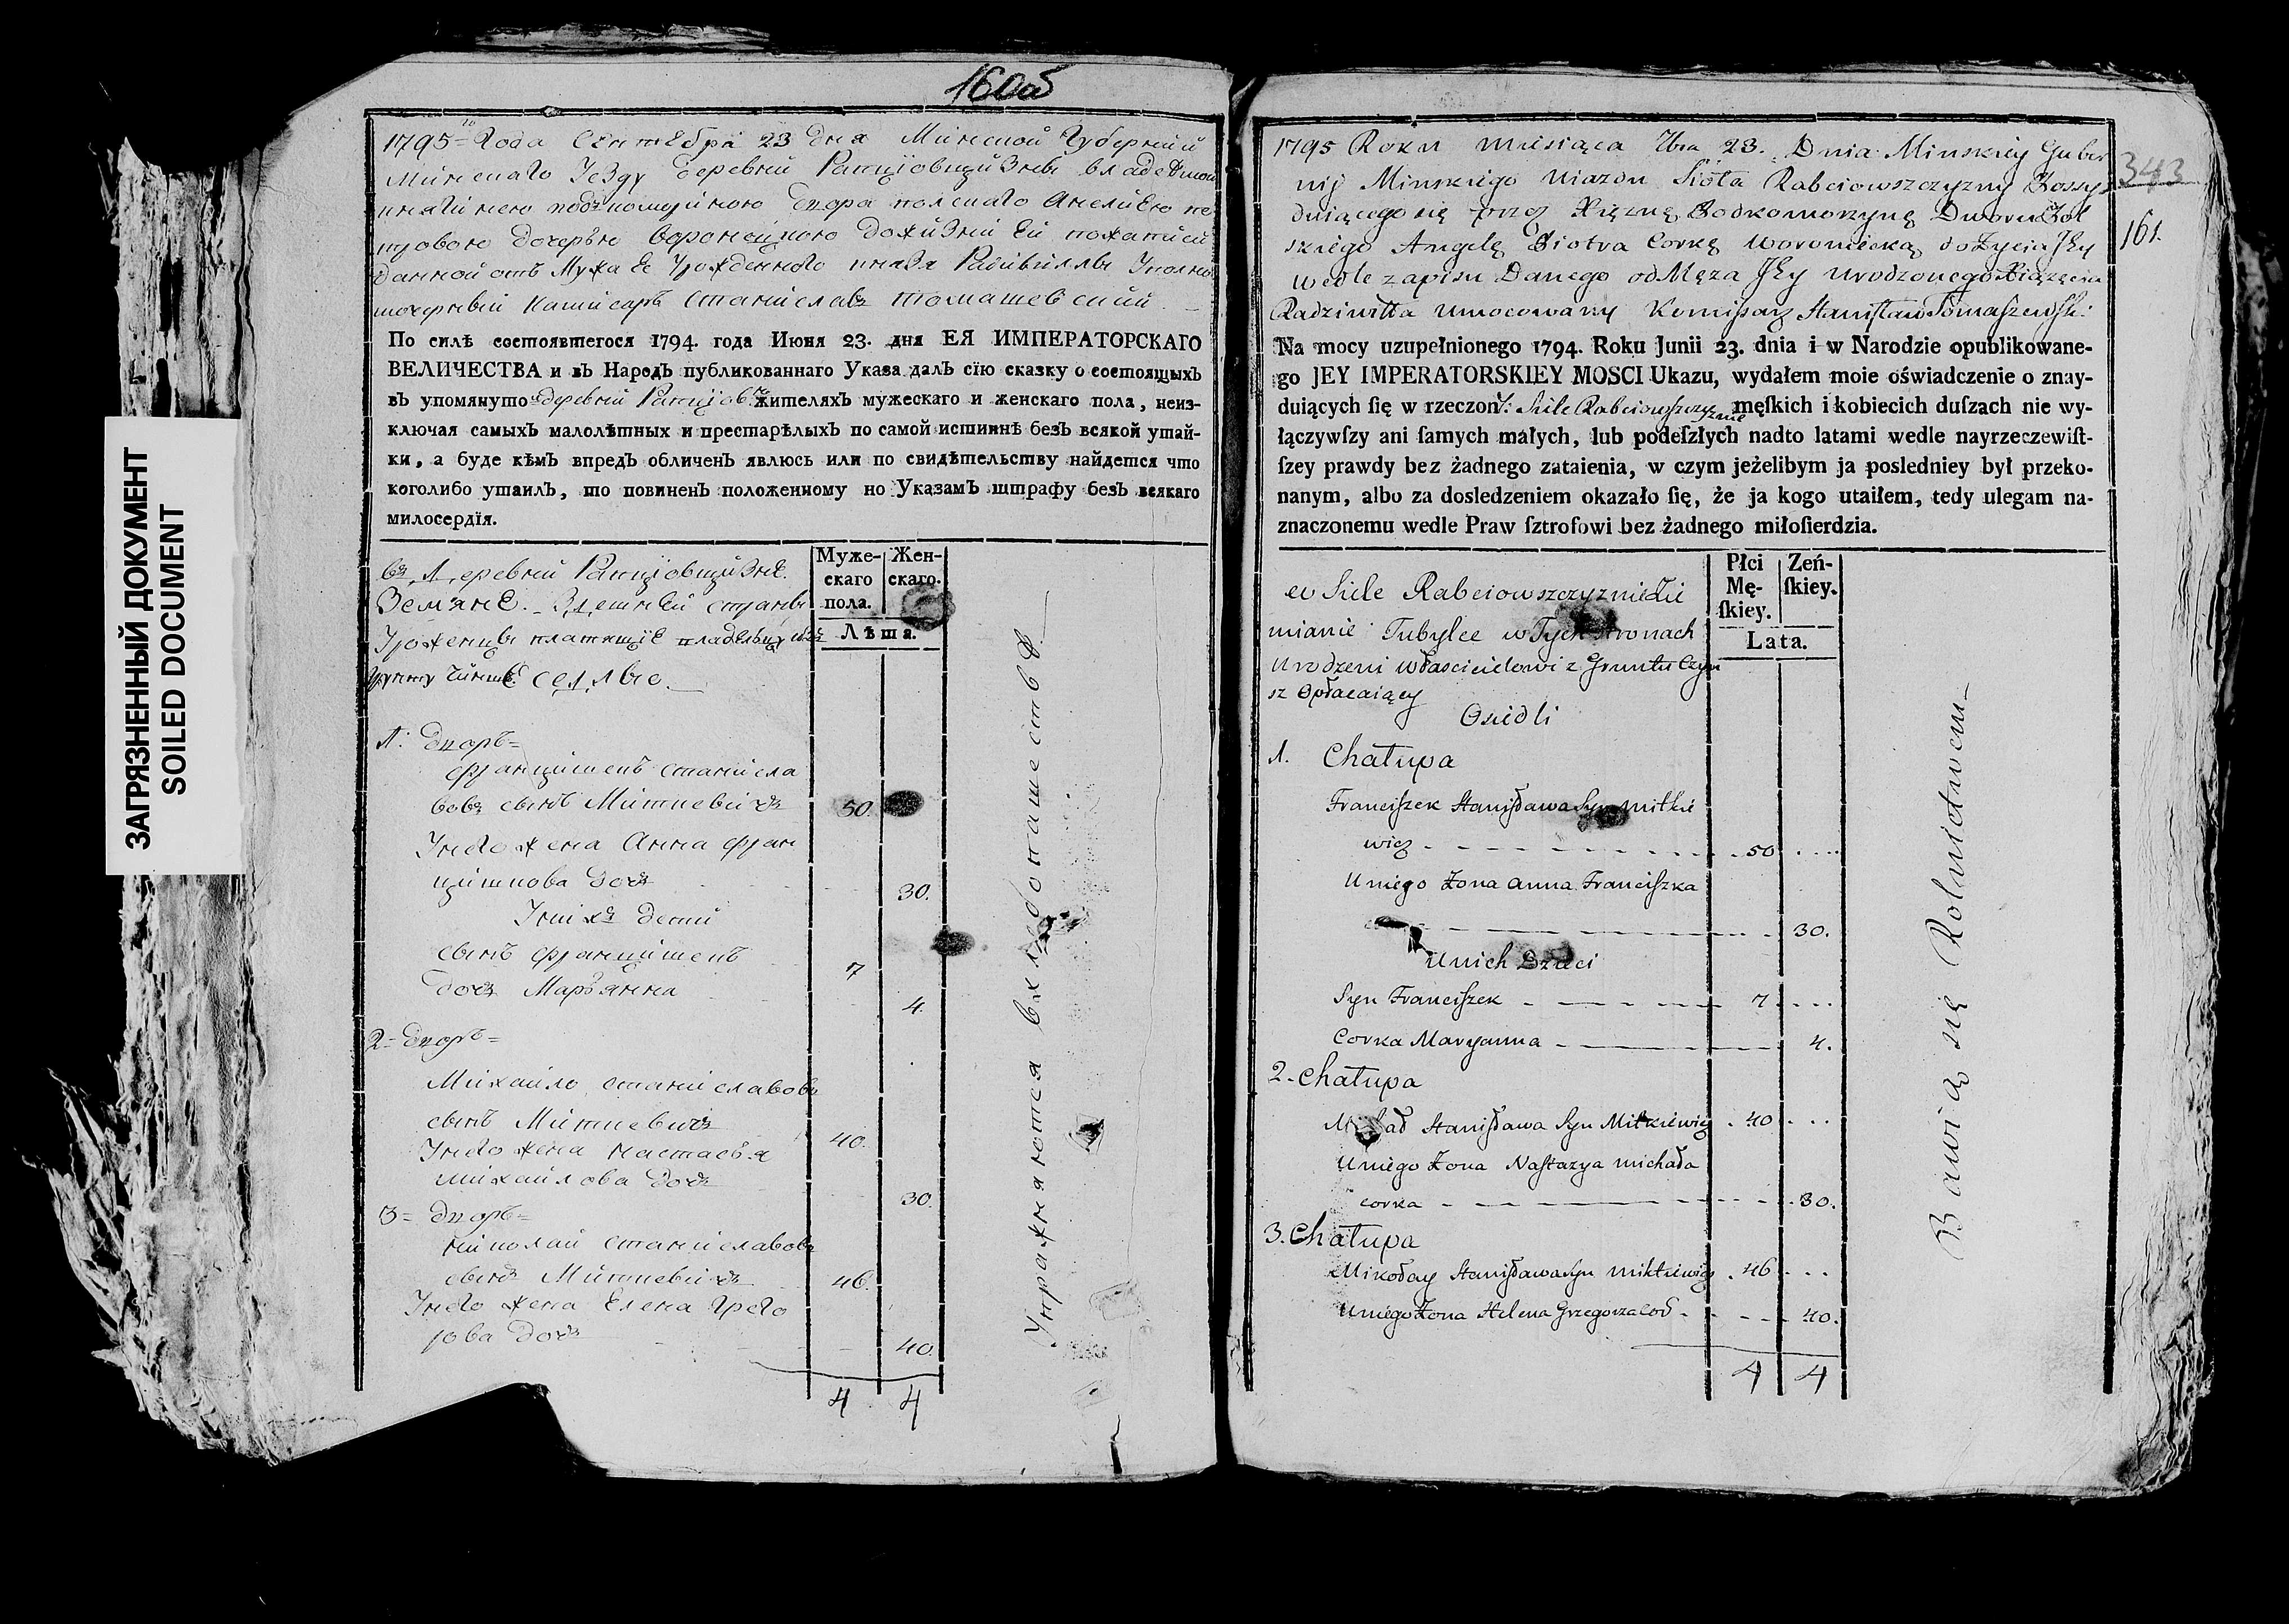 160об
1795го Года Сентебра 23 дня Минской Губернии
Минскаго Уезду деревни Рапцiовщизны владемой
княгинею подкоморiною двора полскаго Анелиею пе
тровою дочерью воронецкою дожизни Ей
данной отъ Мужа Ее Урожденного князя Радивилла Уполно
моченный камисаръ Станиславъ Томашевский
По силѣ состоявшегося 1794. года Июня 23. дня ЕЯ ИМПЕРАТОРСКАГО
ВЕЛИЧЕСТВА и въ Народъ публикованнаго Указа далъ сïю сказку о состоящыхъ
въ упомянуто деревни Рапцiов жителяхъ мужескаго и женскаго пола, неиз-
ключая самыхъ малолѣтных и престарѣлыхъ по самой истиннѣ безъ всякой утай-
ки, а буде кѣмъ впредъ обличенъ явлюсь или по свидѣтельству найдется что
коголибо утаилъ, то повиненъ положенному по Указамъ штрафу безъ всякаго
милосердïя.
Муже-
скаго
пола.
Жен-
скаго.
Лѣта.
въ Деревни Рапцiовщизне.
Земяне. Здешней страны
Уроженцы платящiе владельцу изъ
грунту чиншъ Седлые.
1. Дворъ
Францишекъ станисла
вовъ сынъ Миткевичъ 50.
Унего жена Анна фран
цишкова дочь 30.
Унихъ дети
сынъ францишекъ 7
дочь Марьянна 4.
2 дворъ
Михайло станиславовъ
сынъ Миткевичъ 40.
Унего жена настасья
михайлова дочь 30.
3 дворъ
николай станиславовъ
сынъ Миткевичъ 46.
Унего жена Елена Григо
рова дочь 40.
4 4
Упражняются вхлебопашестве
343
161.
1795 Roku miesiąca 7bra 23. Dnia Minskiey Guber
nij Minskiego Uiazdu Sioła Rabciowszczyzny Zossy
duiącego się przez Xiężnę Podkomorzynę Dworu Pol
skiego Angelę Piotra Corkę Woroniecką do Zycia Jey
wedle zapisu Danego od Męza Jey urodzonego Xiązęcia
Radziwiłła umocowany Komissarz Stanisław Tomaszewski
Na mocy uzupełnionego 1794. Roku Junii 23. dnia i w Narodzie opublikowane-
go JEY IMPERATORSKIEY MOSCI Ukazu, wydałem moie oświadczenie o znay-
duiących ſię w rzeczony: Siele Rabciowszczyznie męſkich i kobiecich duſzach nie wy-
łączywſzy ani ſamych małych, lub podeſzłych nadto latami wedle nayrzeczewiſt-
ſzey prawdy bez żadnego zataienia, w czym jeżelibym ja posledniey był przeko-
nanym, albo za dosledzeniem okazało ſię, że ja kogo utaiłem, tedy ulegam na-
znaczonemu wedle Praw ſztrofowi bez żadnego miłoſierdzia.
Płci
Mę-
ſkiey.
Zeń-
ſkiey.
Lata.
w Siele Rabciowszczyznie Zie
mianie Tubylce w Tych stronach
urodzeni włascicielowi z Gruntu Czyn
sz Opłacaiący
Osiedli
1. Chałupa
Franciszek Stanisława Syn mitkie
wicz 50
Uniego Zona Anna Franciszka
30.
Unich Dzieci
Syn Franciszek 7
Corka Maryanna 4.
2. Chałupa
Michał Stanisława Syn Mitkiewicz 40
Uniego Zona Nastazya michała
corka 30.
3. Chałupa
Mikołay Stanisława Syn miktiewicz 46
Uniego Zona Helena Grzegorza Cor 40.
4 4
Bawią się Rolnictwem
ЗАГРЯЗНЕННЫЙ ДОКУМЕНТ
SOILED DOCUMENT